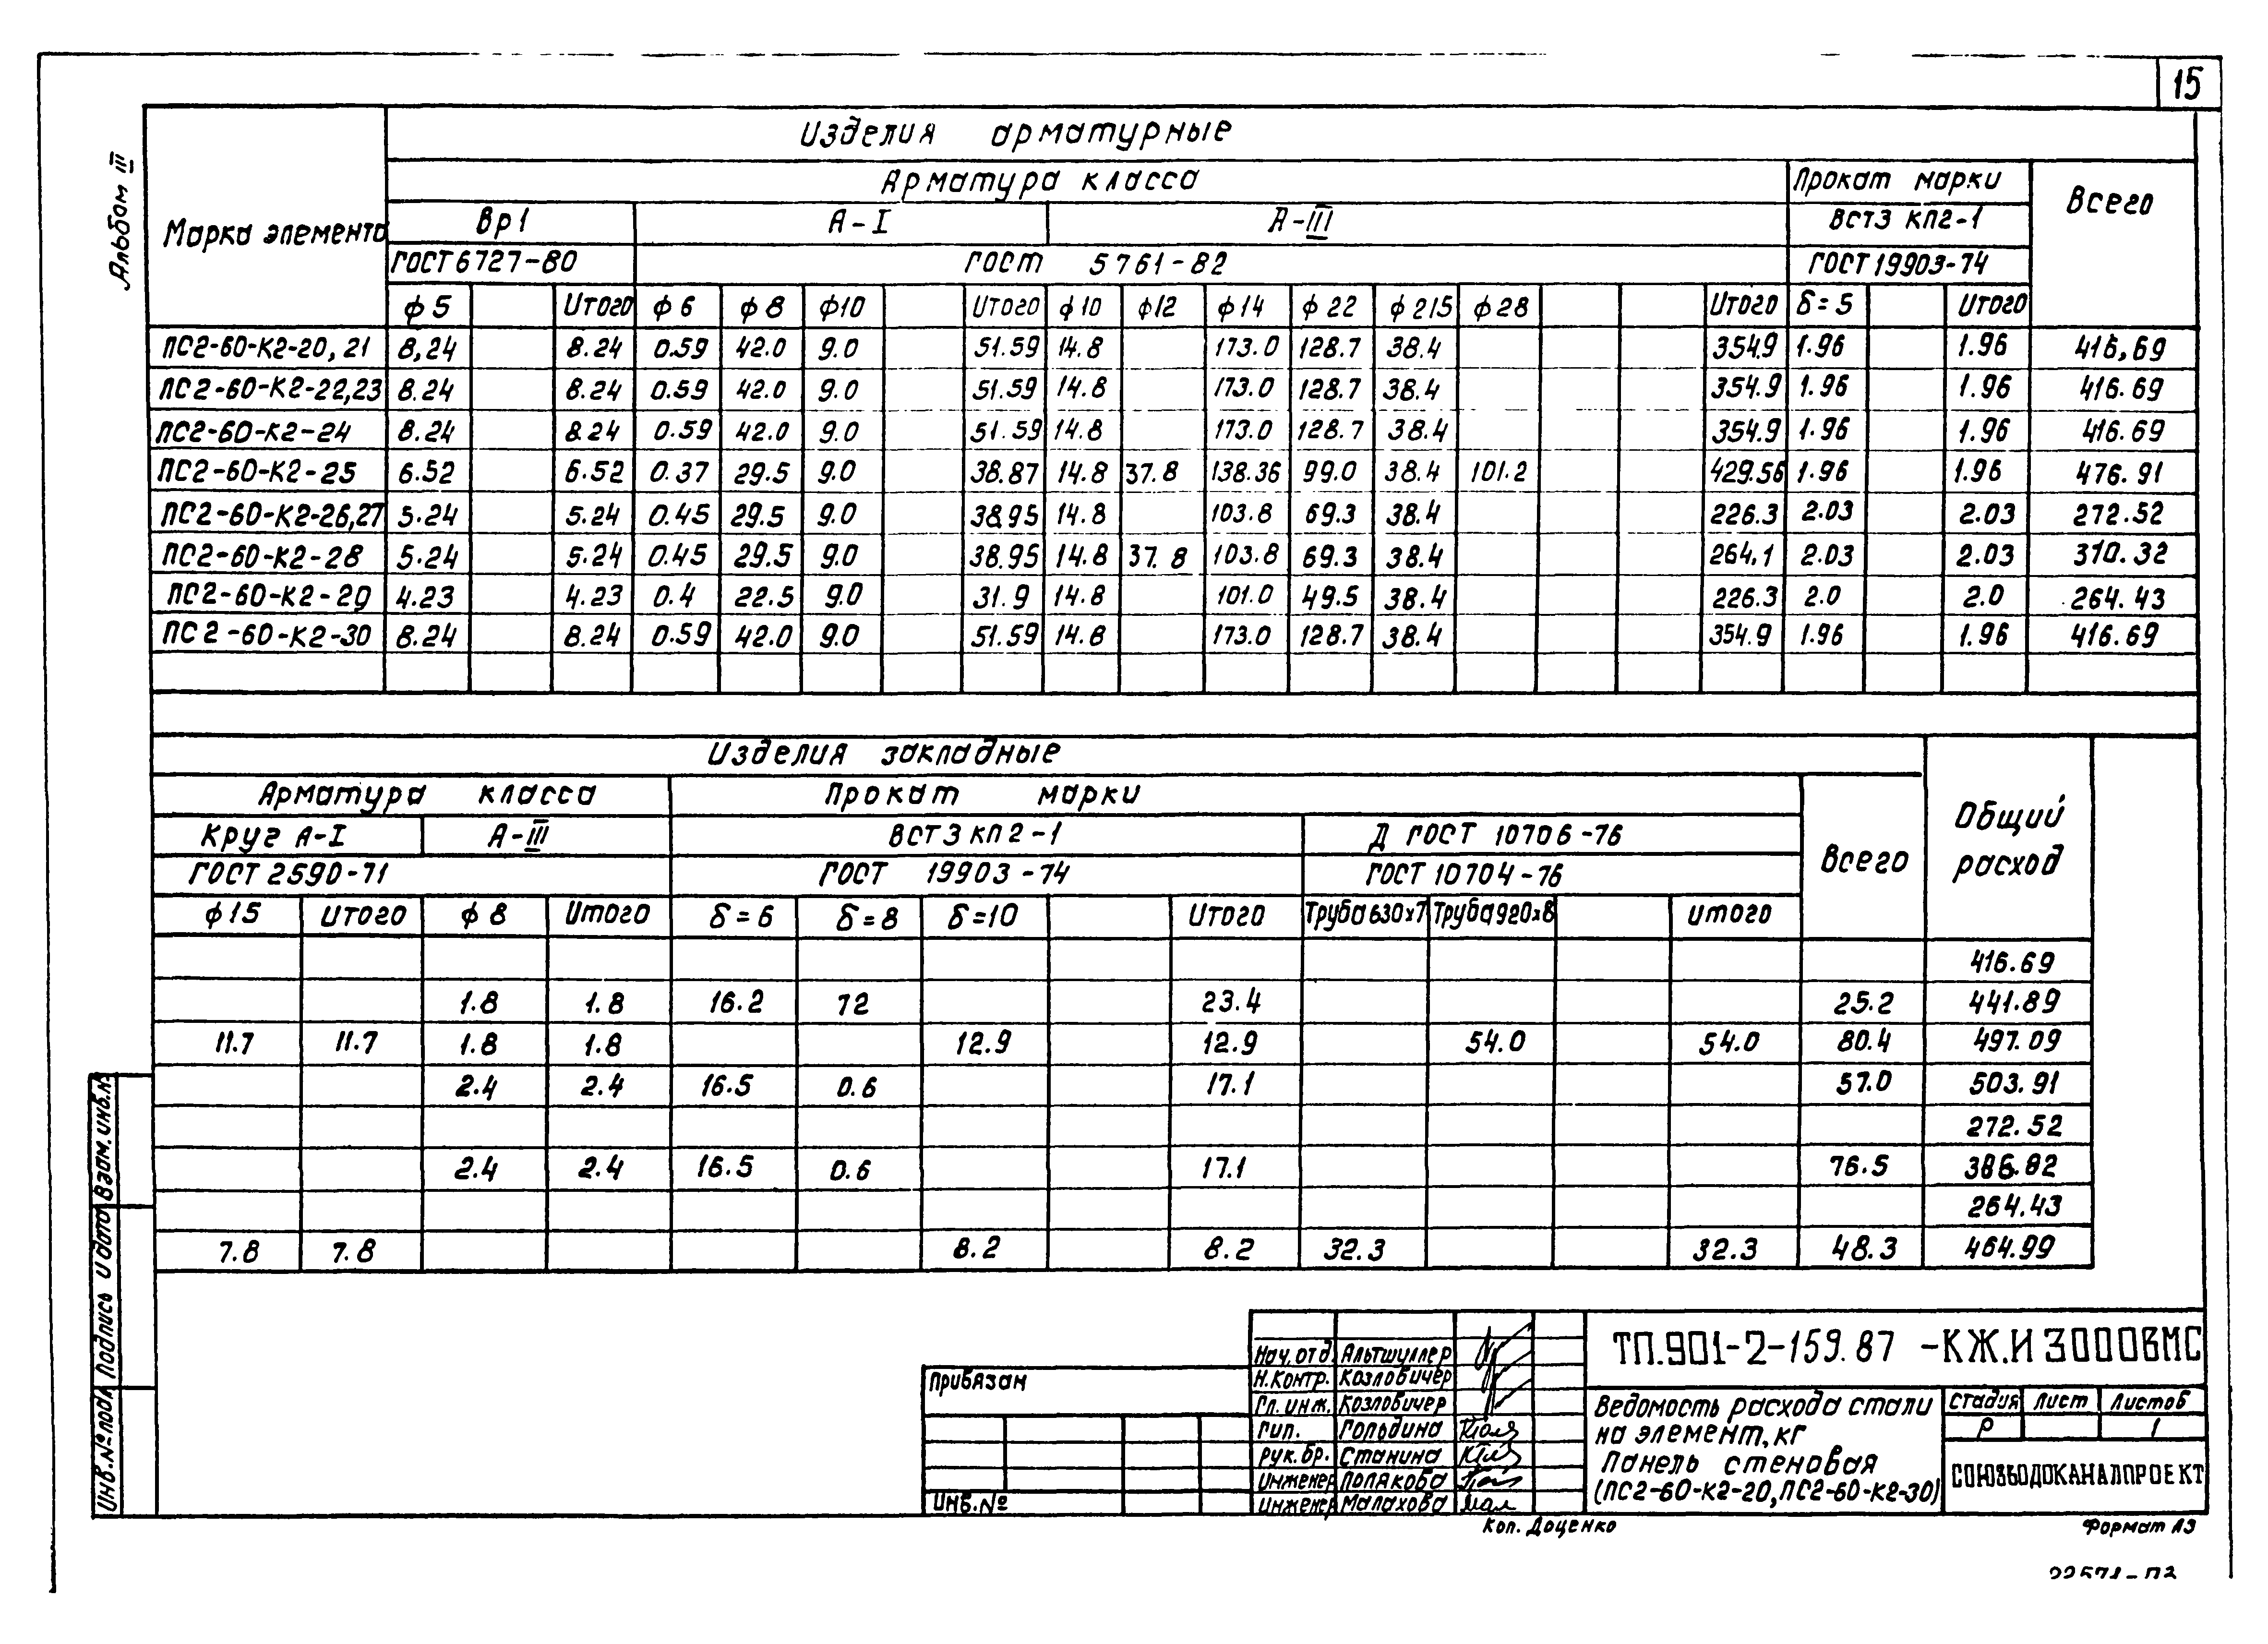 15
Альбом III
Изделия арматурные
Марка элемента
Арматура класса
Прокат марки
Всего
Вр1
А-I
А-III
ВСТ3 КП2-1
ГОСТ 6727-80
ГОСТ 5761-82
ГОСТ 19903-74
ф5 Итого ф6 ф8 ф10 Итого ф10 ф12 ф14 ф22 ф215 ф28 Итого δ=5 Итого
ПС2-60-К2-20,21 8,24 8.24 0.59 42.0 9.0 51.59 14.8 173.0 128.7 38.4 354.9 1.96 1.96 416,69
ПС2-60-К2-22,23 8.24 8.24 0.59 42.0 9.0 51.59 14.8 173.0 128.7 38.4 354.9 1.96 1.96 416.69
ПС2-60-К2-24 8.24 8.24 0.59 42.0 9.0 51.59 14.8 173.0 128.7 38.4 354.9 1.96 1.96 416.69
ПС2-60-К2-25 6.52 6.52 0.37 29.5 9.0 38.87 14.8 37.8 138.36 99.0 38.4 101.2 429.56 1.96 1.96 476.91
ПС2-60-К2-26,27 5.24 5.24 0.45 29.5 9.0 38.95 14.8 103.8 69.3 38.4 226.3 2.03 2.03 272.52
ПС2-60-К2-28 5.24 5.24 0.45 29.5 9.0 38.95 14.8 37.8 103.8 69.3 38.4 264,1 2.03 2.03 310.32
ПС2-60-К2-29 4.23 4.23 0.4 22.5 9.0 31.9 14.8 101.0 49.5 38.4 226.3 2.0 2.0 264.43
ПС2-60-К2-30 8.24 8.24 0.59 42.0 9.0 51.59 14.8 173.0 128.7 38.4 354.9 1.96 1.96 416.69
Изделия закладные
Общий расход
Арматура класса
Прокат марки
Всего
Круг А-I
А-III
ВСТ3 КП2-1
Д ГОСТ 10706-76
ГОСТ 2590-71
ГОСТ 19903-74
ГОСТ 10704-76
ф15 Итого ф8 Итого δ=6 δ=8 δ=10 Итого Труба 630х7 Труба 920х8 Итого
416.69
1.8 1.8 16.2 72 23.4 25.2 441.89
11.7 11.7 1.8 1.8 12.9 12.9 54.0 54.0 80.4 497.09
2.4 2.4 16.5 0.6 17.1 57.0 503.91
272.52
2.4 2.4 16.5 0.6 17.1 76.5 386.82
264.43
7.8 7.8 8.2 8.2 32.3 32.3 48.3 464.99
Взам.инв.№
Подпись и дата
Инв.№ подл
Привязан
Инв.№
Нач.отд. Альтшуллер
Н.контр. Козловичер
Гл. инж. Козловичер
Гип. Гольдина
Рук.бр. Станина
Инженер Полякова
Инженер Малахова
ТП.901-2-159.87 -КЖ.И3000ВМС
Ведомость расхода стали
на элемент, кг
Панель стеновая
(ПС2-60-К2-20, ПС2-60-К2-30)
Стадия Лист Листов
Р 1
СОЮЗВОДОКАНАЛПРОЕКТ
Коп. Доценко
Формат А3